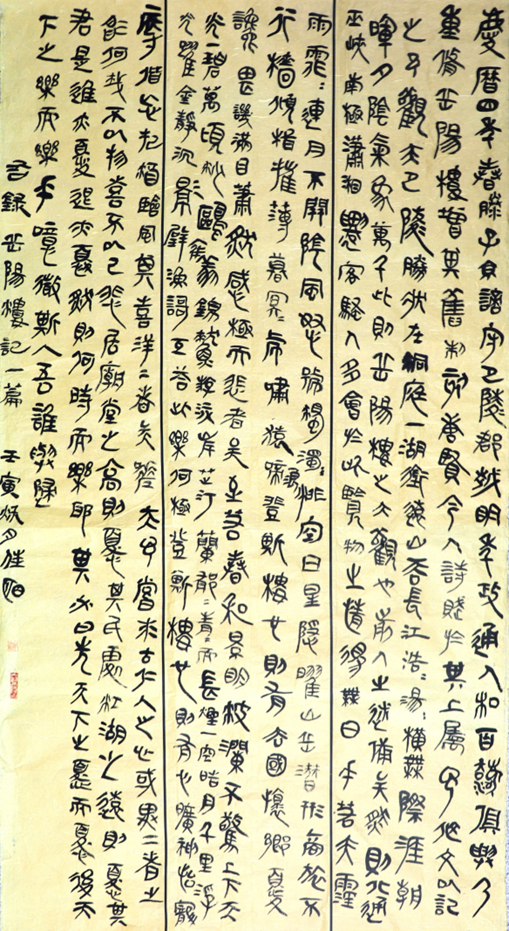 慶曆四年春滕子京謫守巴陵郡越明年政通人和百廢俱興乃
重脩岳陽樓增其舊制刻唐賢今人詩賦於其上屬予作文以記
之予觀夫巴陵勝狀在洞庭一湖銜遠山吞長江浩=湯=橫無際涯朝
暉夕陰氣象萬千此則岳陽樓之大觀也前人之述備矣然則北通
巫峽南極瀟湘遷客騷人多會於此覽物之情得無異乎若夫霪
雨霏=連月不開陰風怒號濁浪排空日星隱曜山岳潛形商旅不
行檣傾楫摧薄暮冥=虎嘯猿啼登斯樓也則有去國懷鄉憂
讒畏譏滿目蕭然感極而悲者矣至若春和景明波瀾不驚上下天
光一碧萬頃沙鷗翔集錦鱗游泳岸芷汀蘭郁=青=而長煙一空皓月千里浮
光躍金靜沉影璧漁歌互答此樂何極登斯樓也則有心曠神怡寵
辱偕忘把酒臨風其喜洋=者矣嗟夫予嘗求古仁人之心或異二者之
爲何哉不以物喜不以己悲居廟堂之高則憂其民處江湖之遠則憂其
君是進亦憂退亦憂然則何時而樂耶其必曰先天下之憂而憂後天
下之樂而樂乎噫微斯人吾誰與歸
右錄岳陽樓記一篇 壬寅秋月